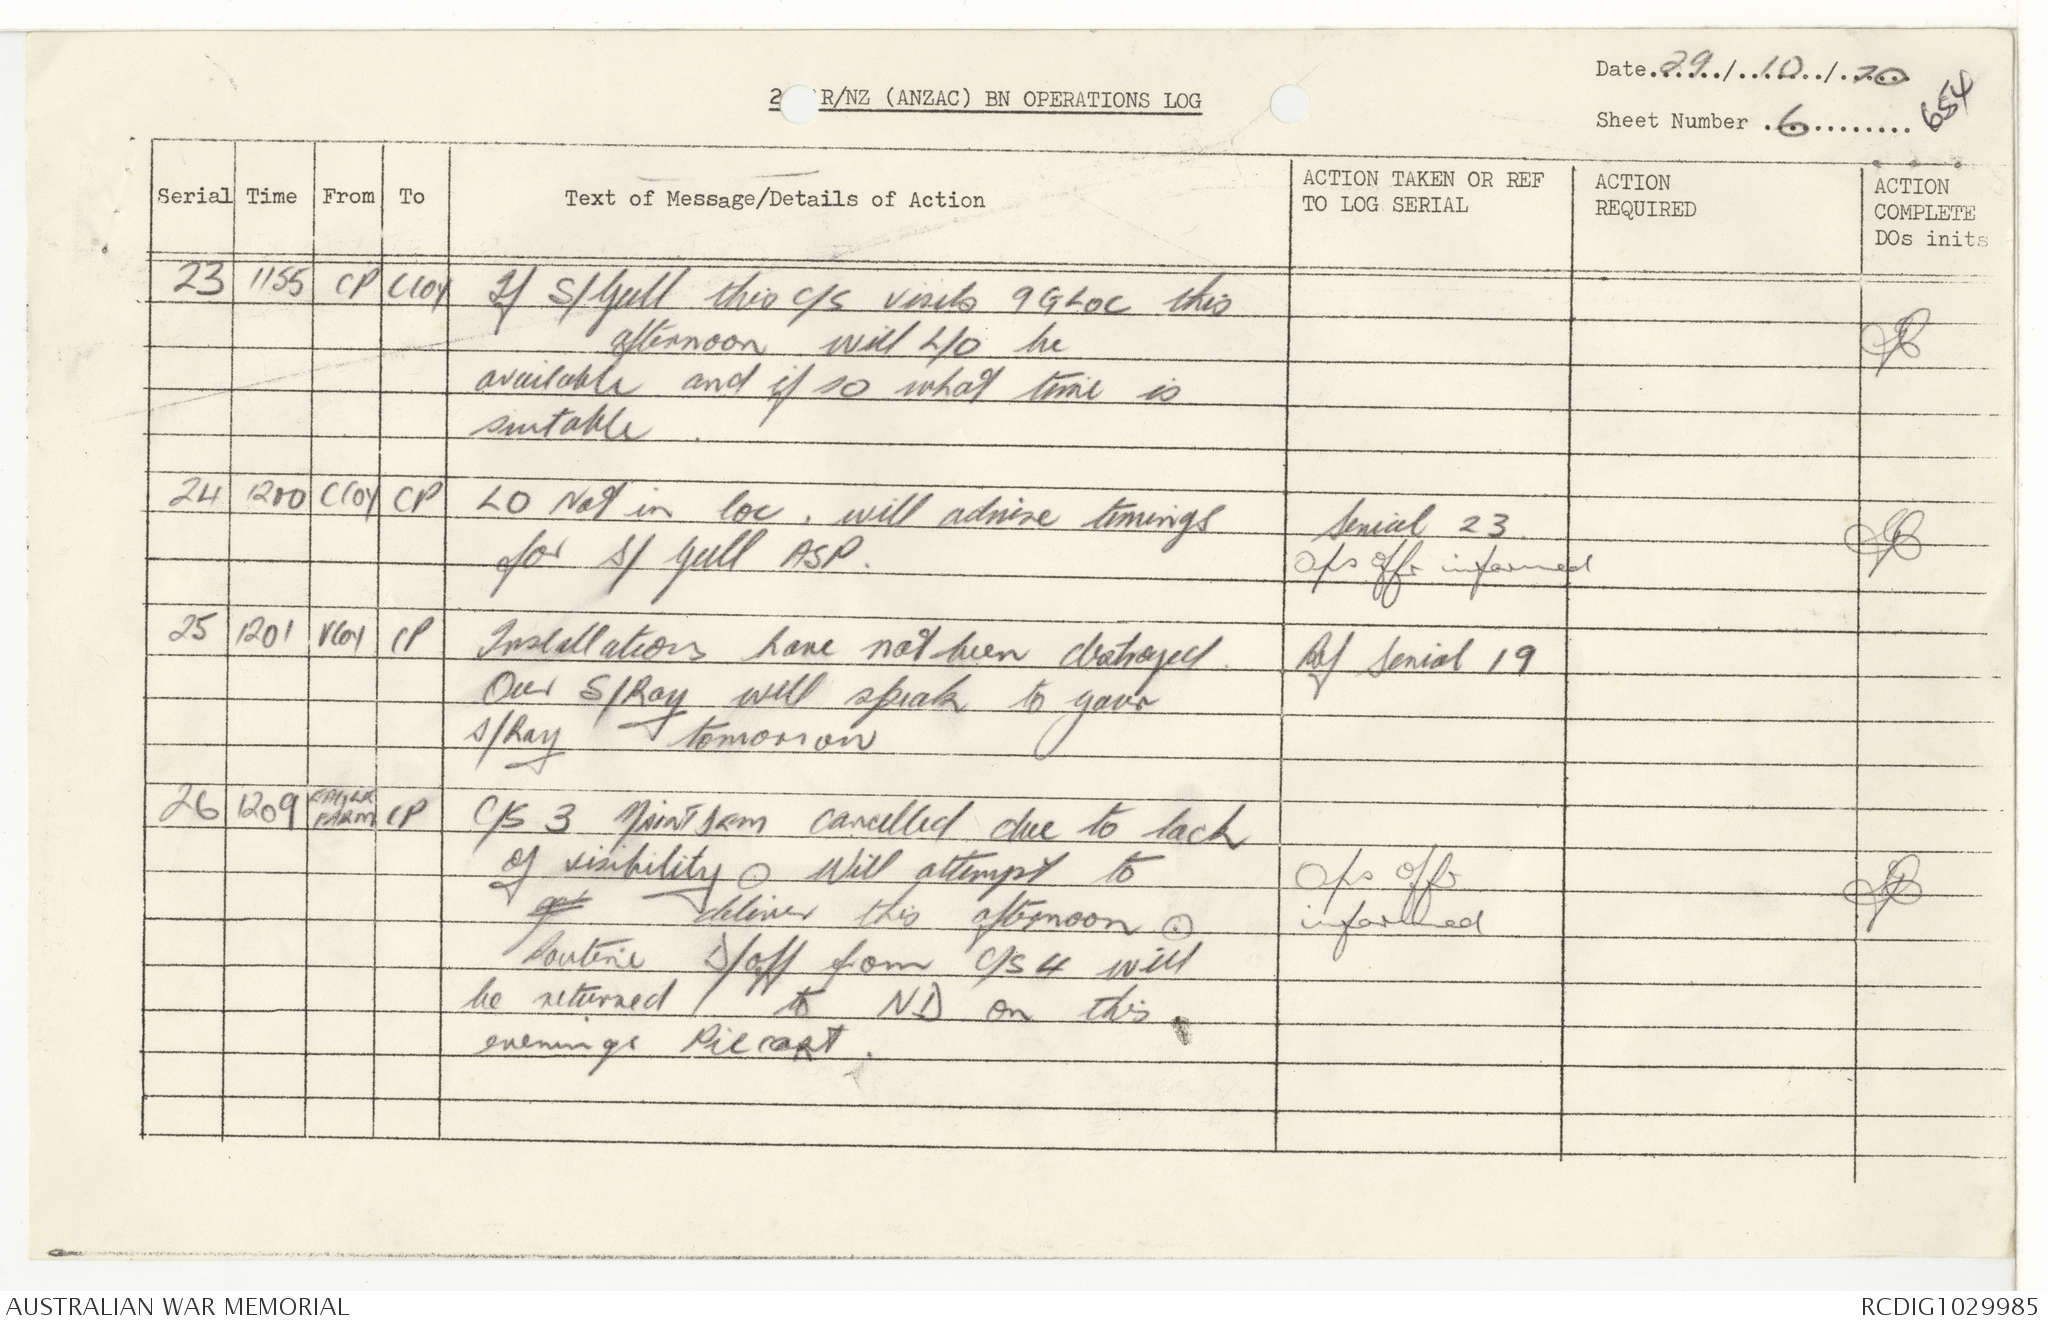 Date 29/10/70
2 R/NZ (ANZAC) BN OPERATIONS LOG
Sheet Number 6
654
Serial Time From To Text of Message/Details of Action ACTION TAKEN OR REF TO LOG SERIAL ACTION REQUIRED ACTION COMPLETE DOs inits
23 1155 CP Cloy If S/Gull this C/S visits 9 G Loc this
afternoon will L/O be
available and if so what time is
suitable.
24 1200 Cloy CP LO Not in loc. will advise timings Serial 23.
for S/Gull ASP. Ops offr informed
25 1201 CP Installations have not been destroyed. Ref Serial 19
Our S/Ray will speak to your
S/Ray tomorrow
26 1209 EAGLE FARM CP C/S 3 cancelled due to lack
of visibility. Will attempt to Ops offr
deliver this afternoon. informed
Routine D/off from C/S 4 will
be returned to ND on this
evenings Piecart.
AUSTRALIAN WAR MEMORIAL
RCDIG1029985